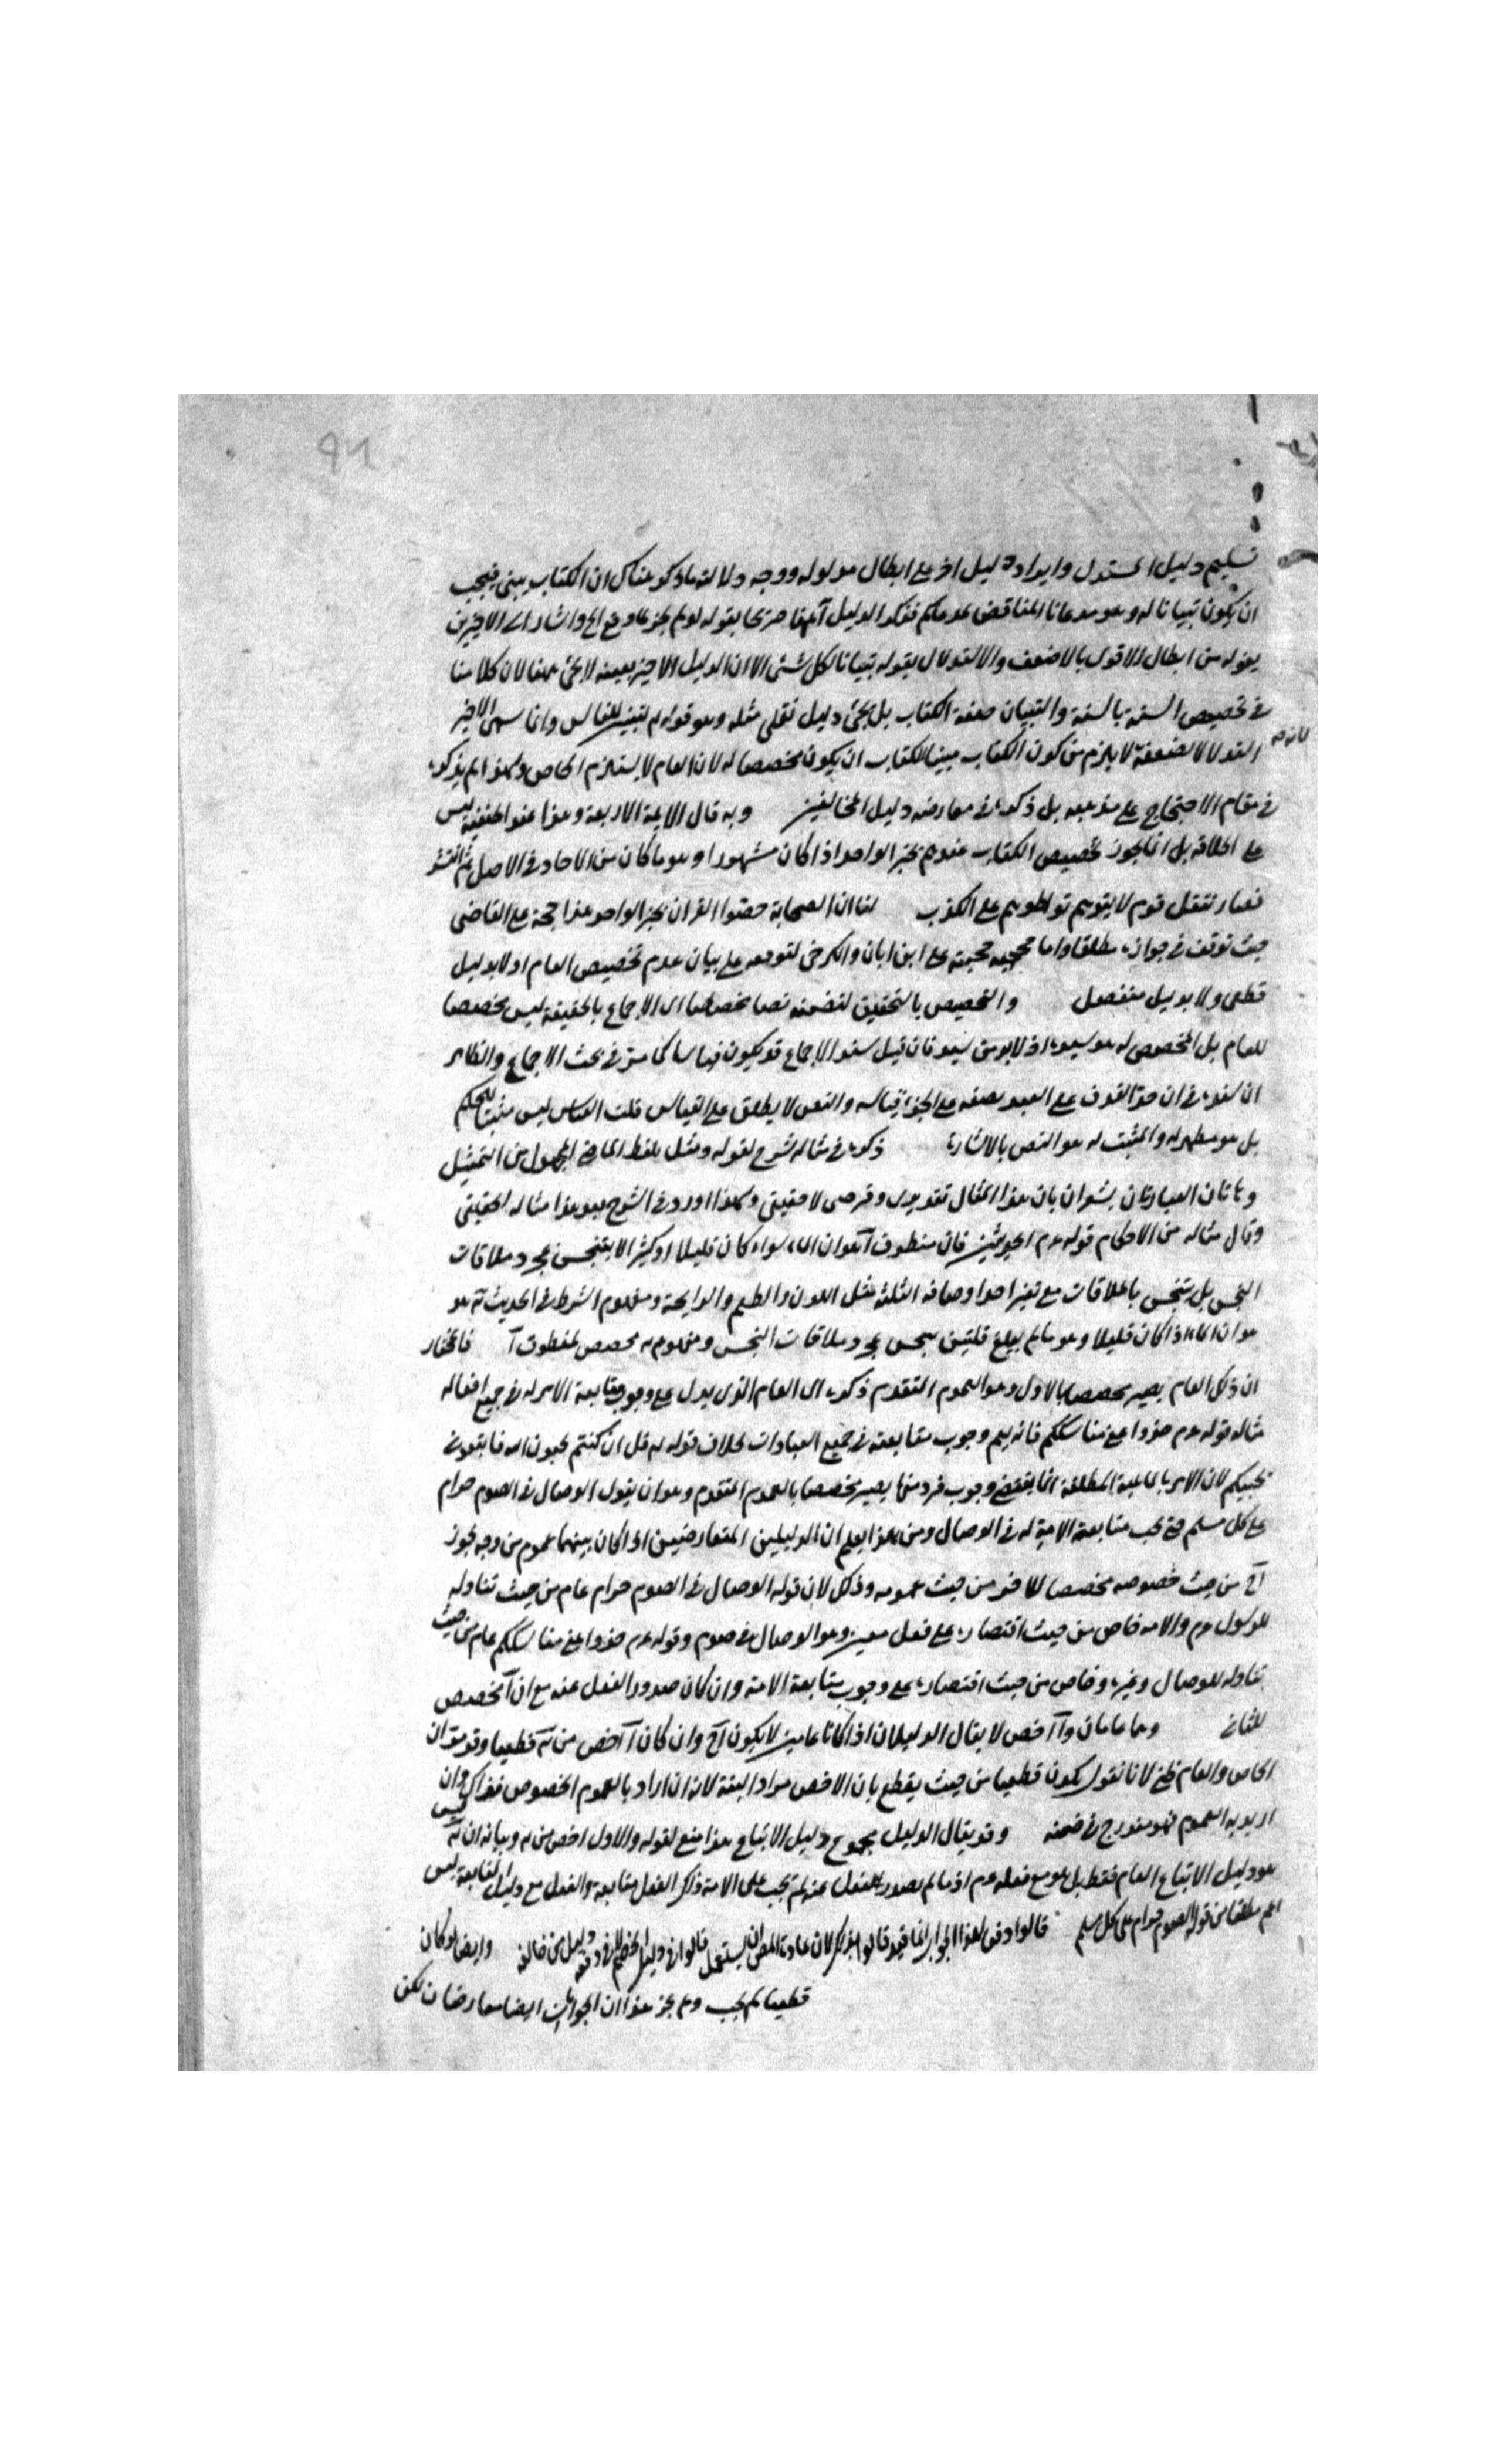 تسليم دليل المستدل وايراد دليل اخر على ابطال مدلوله ووجه دلالته ما ذكر هناك ان الكتاب مبين فيجب
ان يكون تبيانا له وهو مدعانا المناقض لمدعاكم فذكر الدليل آ ههنا صريحا بقوله لو لم يجز لما وقع الخ واشار الى الاخيرين
بقوله من ابطال الاقوى بالاضعف والاستدلال بقوله تبيانا لكل شئ الا ان الدليل الاخير بعينه لا يجئ ههنا لان كلامنا
في تخصيص السنة بالسنة والتبيان صفة الكتاب بل يجئ دليل نقلي مثله وهو قوله لتبين للناس وانما سمى الاخير
استدلالا لضعفه لا يلزم من كون الكتاب مبينا للكتاب ان يكون مخصصا له لان العام لا يستلزم الخاص ولهذا لم يذكره
في مقام الاحتجاج على مذهبه بل ذكره في معارضه دليل المخالفين وبه قال الايمة الاربعة وهذا عند الحنفية ليس
على اطلاقه بل انما يجوز تخصيص الكتاب عندهم بخبر الواحد اذا كان مشهورا وهو ما كان من الاحاد في الاصل ثم انتشر
فصار ينقل قوم لا يتوهم تواطوهم على الكذب لنا ان الصحابة خصوا القران بخبر الواحد هذا حجة على القاضي
حيث توقف في جوازه مطلقا واما حجيته على ابن ابان والكرخي لتوقفه على بيان عدم تخصيص العام اولا بدليل
قطعي ولا بدليل منفصل والتخصيص بالتحقيق لتضمنه نصا مخصصا اى الاجماع بالحقيقة ليس مخصصا
للعام بل المخصص له هو سنده اذ لابد من سند فان قيل سند الاجماع قد يكون قياسا كما مر في بحث الاجماع والظاهر
ان سنده في ان حد القذف على العبد نصفه على الحر قياسه والنص لا يطلق على القياس قلت القياس ليس مثبتا للحكم
بل هو مظهر له والمثبت له هو النص بالاشارة ذكره في مثاله شرح لقوله ومثل بلفظ الماضي المجهول من التمثيل
وهاتان العبارتان يشعران بان هذا المثال تقديرى وفرضى لا حقيقي ولهذا اورد في الشرح بعد هذا مثاله الحقيقي
وقال مثاله من الاحكام قوله عم الحديثين فان منطوق آ هو ان الماء سواء كان قليلا او كثيرا لا يتنجس بمجرد ملاقات
النجس بل يتنجس بالملاقات مع تغير احد اوصافه الثلثة مثل اللون والطعم والرايحة ومفهوم الشرط في الحديث هو
هو ان الماء اذا كان قليلا وهو ما لم يبلغ قلتين ينجس بمجرد ملاقات النجس ومفهومه مخصص لمنطوق آ فالمختار
ان ذلك العام يصير مخصصا بالاول وهو العموم المتقدم ذكره اى العام الذى يدل على وجوب متابعة الامة له في جميع افعاله
مثاله قوله عم خذوا عني مناسككم فانه يعم وجوب متابعته في جميع العبادات بخلاف قوله قل ان كنتم تحبون الله فاتبعوني
يحببكم لان الامر بالماهية المطلقة انما يقتضي وجوب فرد منها يصير مخصصا بالعموم المتقدم وهو ان يقول الوصال في الصوم حرام
على كل مسلم فح يجب متابعة الامة له في الوصال ومن هذا يعلم ان الدليلين المتعارضين اذا كان بينهما عموم من وجه يجوز
آ من حيث خصوصه مخصصا للاخر من حيث عمومه وذلك لان قوله الوصال في الصوم حرام عام من حيث تناوله
للرسول عم والامه خاص من حيث اقتصاره على فعل معين وهو الوصال في صوم وقوله عم خذوا عني مناسككم عام من حيث
تناوله للوصال وغيره وخاص من حيث اقتصاره على وجوب متابعة الامة وان كان صدور الفعل عنه مع ان آ مخصص
للثاني وهما عامان وآ اخص لا يقال الدليلان اذا كانا عامين لا يكون آ وان كان آ اخص من قطعيا وقد مر ان
الخاص والعام ظني لانا نقول يكون قطعيا من حيث يقطع بان الاخص مراد البتة لانه ان اراد بالعموم الخصوص فذاك وان
اريد به العموم فهو مندرج في ضمنه وقد يقال الدليل مجموع دليل الاتباع هذا منع لقوله والاول اخص منه وبيانه ان ليس
هو دليل الاتباع العام فقط بل هو مع فعله عم اذ ما لم يصدر الفعل عنه لم يجب على الامة ذلك الفعل متابعة والفعل مع دليل المتابعة ليس
اعم مطلقا من قوله الصوم حرام على كل مسلم قالوا دفن هذا الجواب انما قيد قالوا بذلك لان عادة المص ان يستعمل قالوا في دليل الخصم وليس من خالفه وايضا لو كان
قطعيا لم يجب ولم يجز هذا ان الجوابان ايضا معارضان لكن